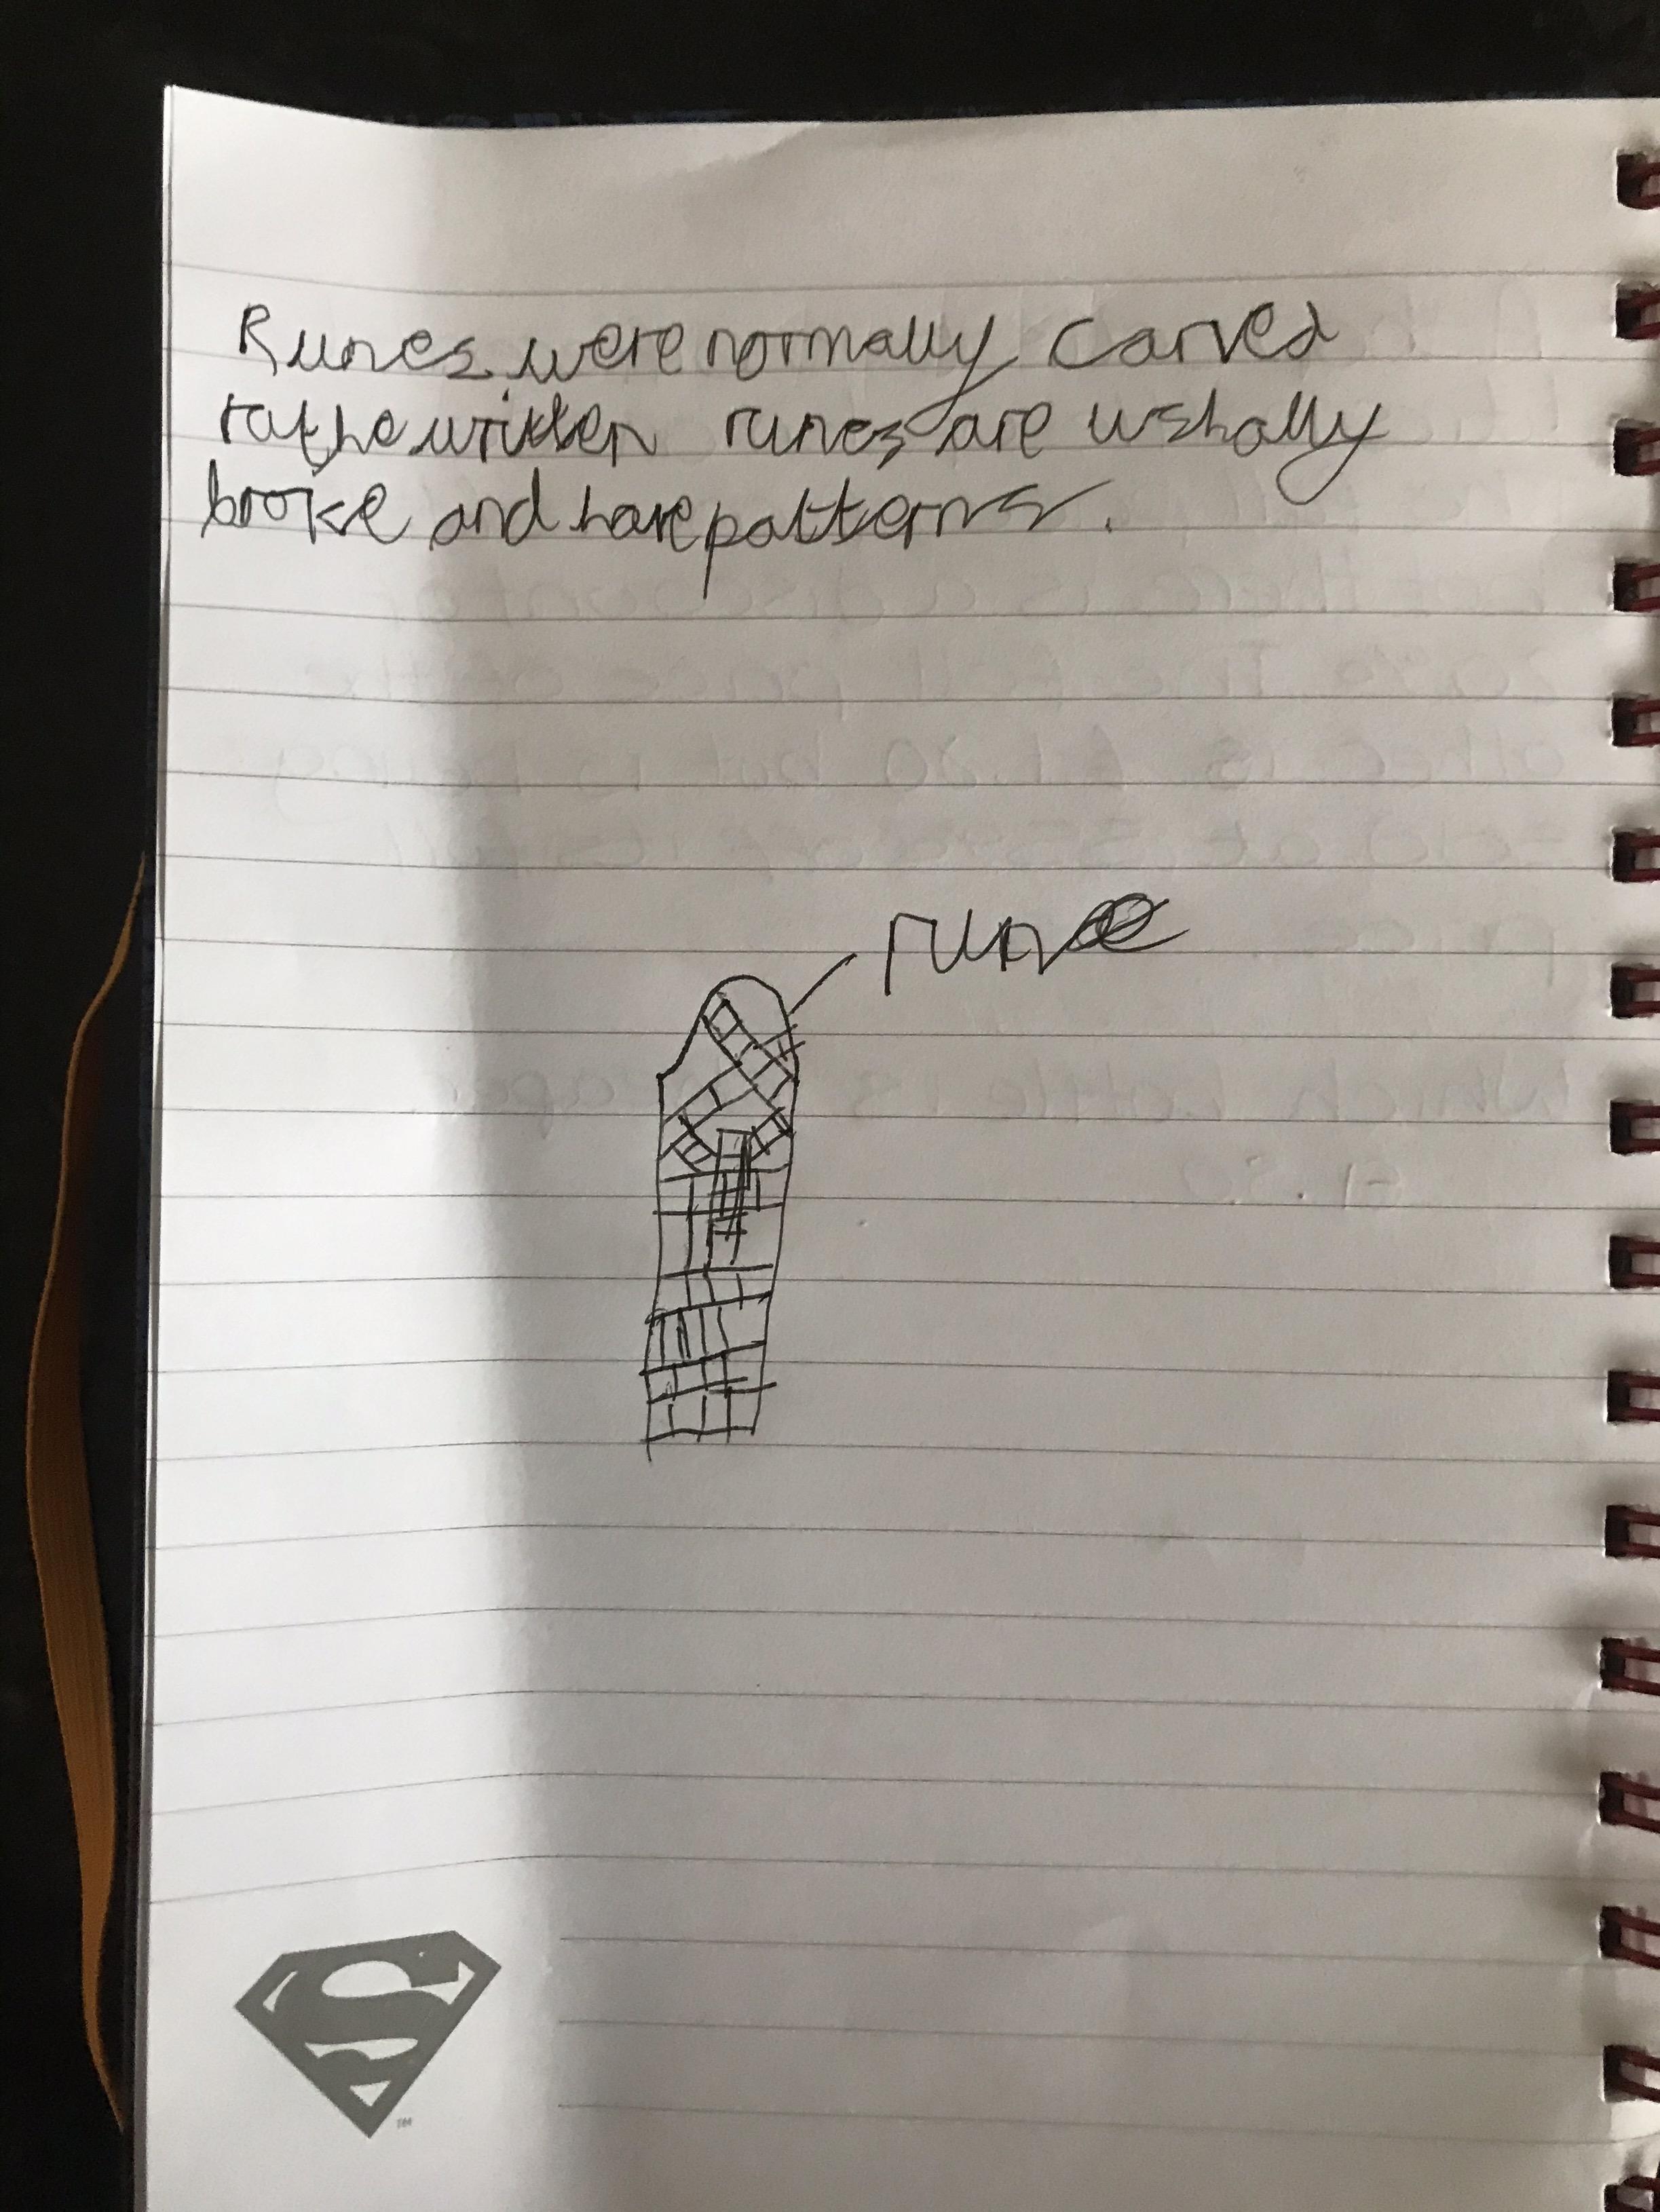 Runes were normally carved
rathe written runes are ushally
broke and have patterns.
rune